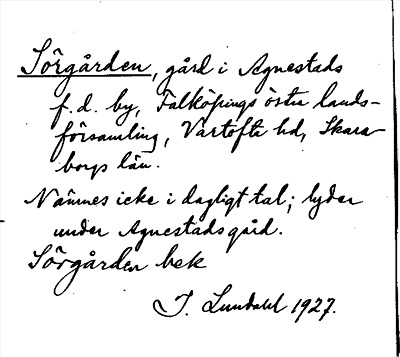 Sörgården, gård i Agnestads
f.d. by, Falköpings östra lands-
församling, Vartofta hd, Skara-
borgs län.
Nämnes icke i dagligt tal; lyder
under Agnestads gård.
Sörgården bek
I. Lundahl 1927.